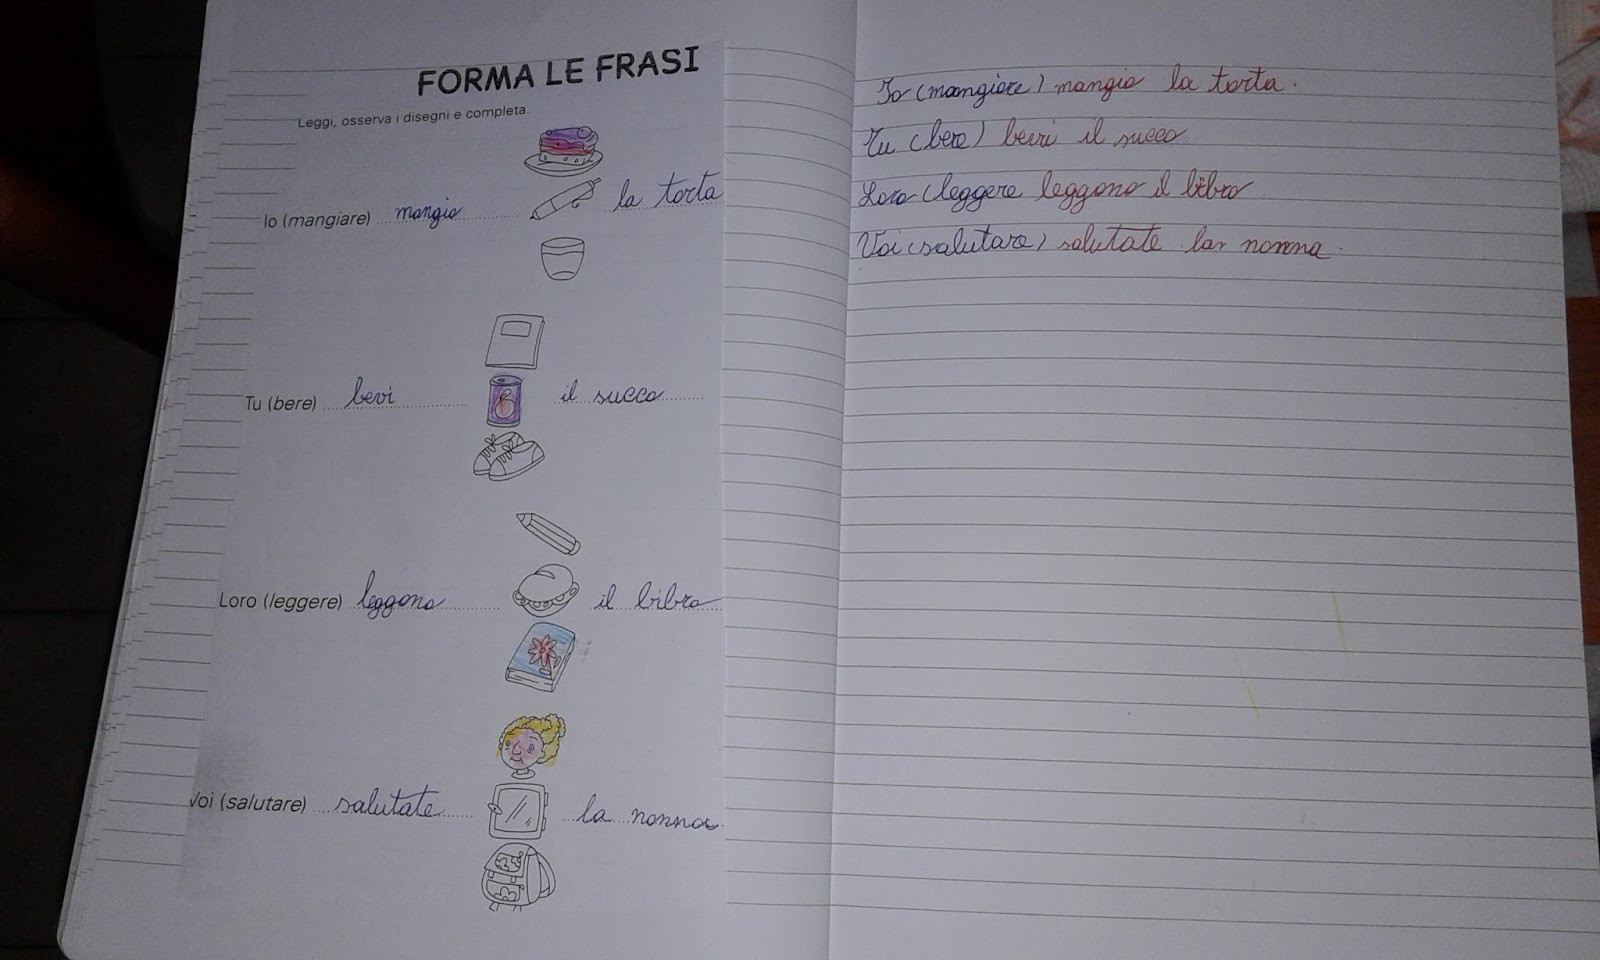 FORMA LE FRASI
Leggi, osserva i disegni e completa.
Io (mangiare) mangio la torta
Tu (bere) bevi il succo
Loro (leggere) leggono il bibro
Voi (salutare) salutate la nonna
Io (mangiare) mangio la torta.
Tu (bere) bevi il succo
Loro (leggere leggono il bibro
Voi (salutare) salutate la nonna.